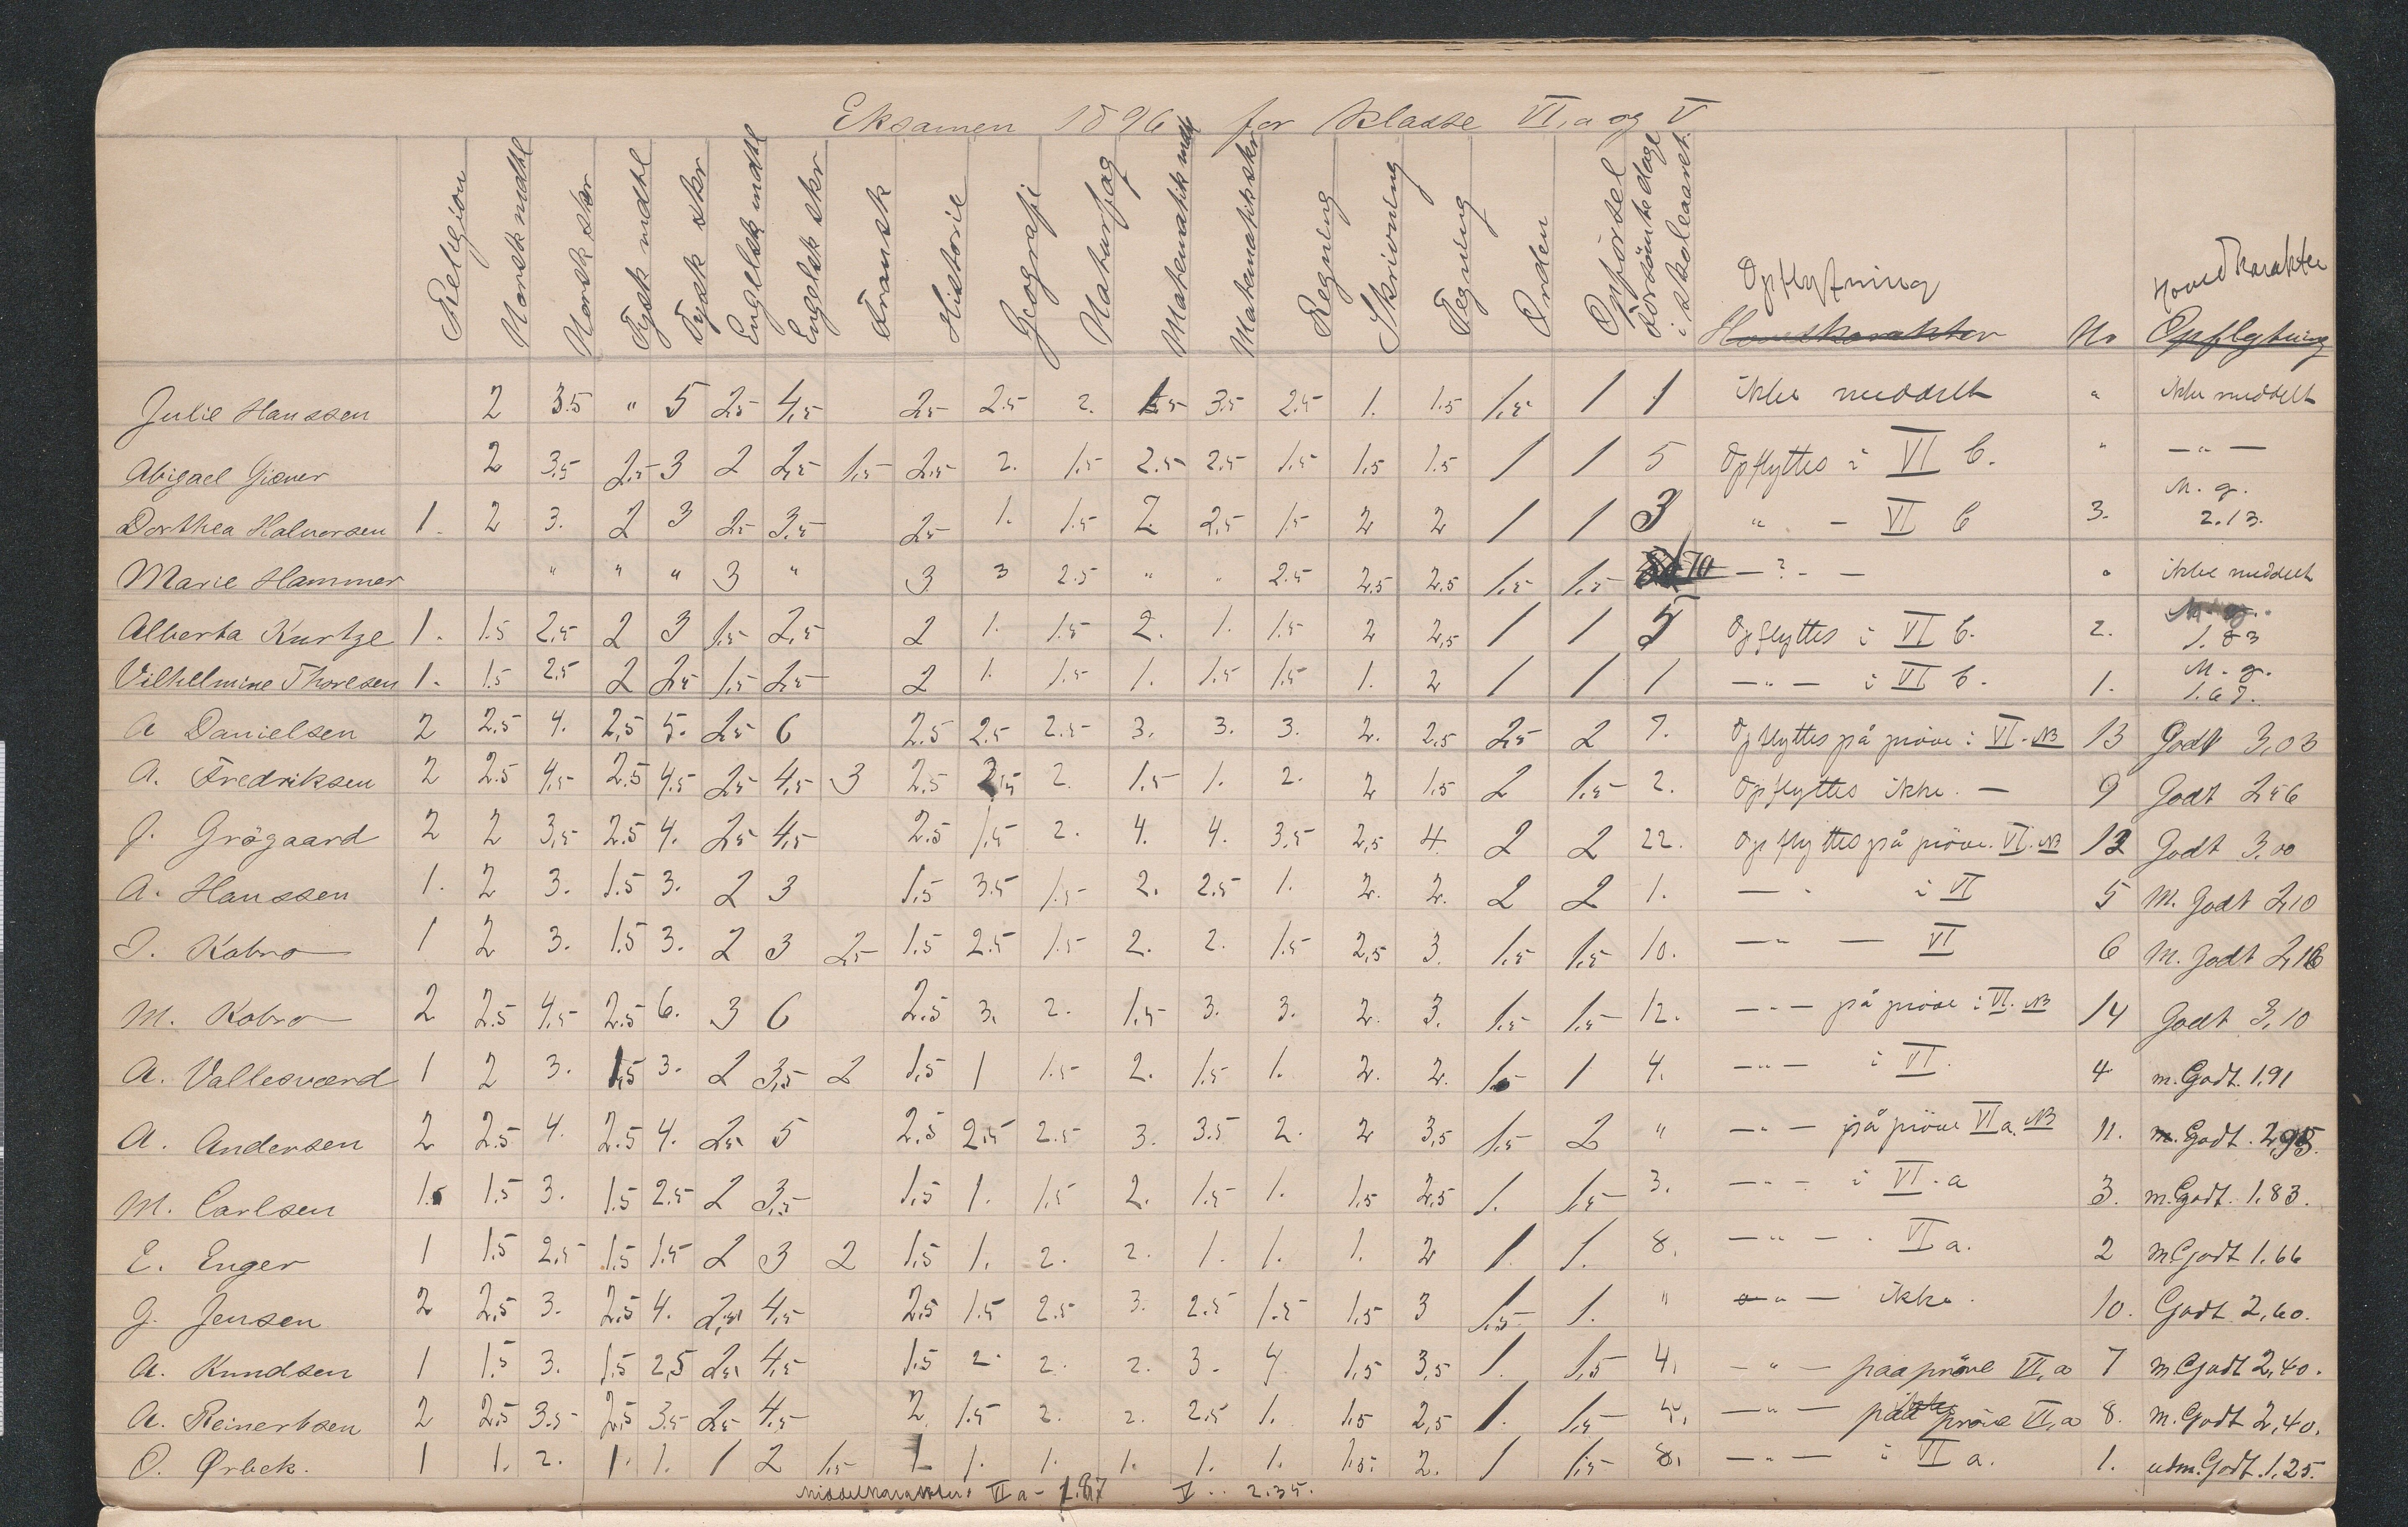 Eksamen 1896 for klasse VI,a og V
Religion Norsk mdtl Norsk skr Tysk mdtl Tysk skr Engelsk mdtl Engelsk skr Fransk Historie Geografi Naturfag Matematik mdtl Matematik skr Regning Skrivning Tegning Orden Opförsel Forsömte dage i skoleaaret. Opflytning Hovedkarakter No Hovedkarakter Opflytning
Julie Hanssen 2 3.5 " 5 2,5 4,5 2,5 2.5 2. 1.5 3.5 2.5 1. 1.5 1,5 1 1 ikke meddelt " ikke meddelt
Abigael Gisner 2 3,5 2,5 3 2 2,5 1,5 2,5 2. 1.5 2.5 2.5 1.5 1,5 1.5 1 1 5 Opflyttes i VI b. " — " —
Dorthea Halvorsen 1. 2 3. 2 3 2,5 3,5 2,5 1. 1.5 2. 2,5 1,5 2 2 1 1 3 " — VI b 3. M. g. 2.13.
Marie Hammer " " " 3 " 3 3 2.5 " " 2.5 2,5 2,5 1,5 1,5 70 — ? - — " ikke meddelt
Alberta Kurtze 1. 1.5 2,5 2 3 1,5 2,5 2 1. 1.5 2. 1. 1.5 2 2,5 1 1 5 Opflyttes i VI b. 2. M. g. 1.83
Vilhelmine Thoresen 1. 1.5 2.5 2 2,5 1,5 2,5 2 1. 1.5 1. 1.5 1,5 1. 2 1 1 1 — " — i VI b. 1. M. g. 1.67.
A Danielsen 2 2.5 4. 2,5 5. 2,5 6 2.5 2.5 2.5 3. 3. 3. 2. 2,5 2,5 2 7. Opflyttes på pröve i VI. NB 13 Godt 3,03
A. Fredriksen 2 2.5 4,5 2.5 4.5 2,5 4,5 3 2,5 2,5 2. 1.5 1. 2. 2 1.5 2 1,5 2. Opflyttes ikke. — 9 Godt 2,56
J. Grögaard 2 2 3,5 2.5 4. 2,5 4,5 2.5 1,5 2. 4. 4. 3,5 2,5 4. 2 2 22. Opflyttes på pröve. VI. NB 12 Godt 3,00
A. Hanssen 1. 2 3. 1.5 3. 2 3 1,5 3.5 1,5 2. 2.5 1. 2. 2. 2 2 1. — " i VI 5 M. Godt 2,10
I. Kobro 1 2 3. 1.5 3. 2 3 2,5 1,5 2.5 1.5 2. 2. 1.5 2,5 3. 1,5 1,5 10. — " — VI 6 M. Godt 2,16
M. Kobro 2 2.5 4,5 2.5 6. 3 6 2.5 3. 2. 1.5 3. 3. 2. 3. 1,5 1,5 12. — " — på pröve i VI. NB 14 Godt 3,10
A. Vallesværd 1 2 3. 1,5 3. 2 3,5 2 1,5 1 1.5 2. 1.5 1. 2. 2. 1.5 1 4. — " — i VI. 4 m. Godt. 1,91
A. Andersen 2 2.5 4. 2.5 4. 2,5 5 2,5 2.5 2.5 3. 3.5 2. 2 3,5 1,5 2 " — " — på pröve VI a. NB 11. m. Godt. 2,95.
M. Carlsen 1.5 1.5 3. 1.5 2.5 2 3,5 1,5 1. 1,5 2. 1.5 1. 1,5 2,5 1. 1,5 3. — " — i VI. a 3. m. Godt. 1,83.
E. Enger 1 1,5 2,5 1,5 1.5 2 3 2 1,5 1. 2. 2. 1. 1. 1. 2 1 1. 8. — " — . VI a. 2 m Godt 1.66
G. Jensen 2 2,5 3. 2,5 4. 2,5 4,5 2,5 1.5 2.5 3. 2.5 1.5 1,5 3 1,5 1. " — " — ikke. 10. Godt 2,60.
A. Knudsen 1 1.5 3. 1,5 2,5 2,5 4,5 1.5 2. 2. 2. 3. 4. 1,5 3,5 1. 1,5 4. — " — paa pröve VI,a 7 m Godt 2,40.
A. Reinertsen 2 2,5 3.5 2,5 3.5 2,5 4,5 2. 1.5 2. 2. 2.5 1. 1,5 2,5 1. 1,5 4. — " — paa pröve VI,a 8. m. Godt 2,40.
O. Ørbek. 1 1. 2. 1. 1. 1 2 1,5 1 1. 1. 1. 1. 1. 1,5. 2. 1 1,5 8. — " — i VI a. 1. udm. Godt. 1,25.
Middelkarakter: VI a – 1.87 V .. 2.35.